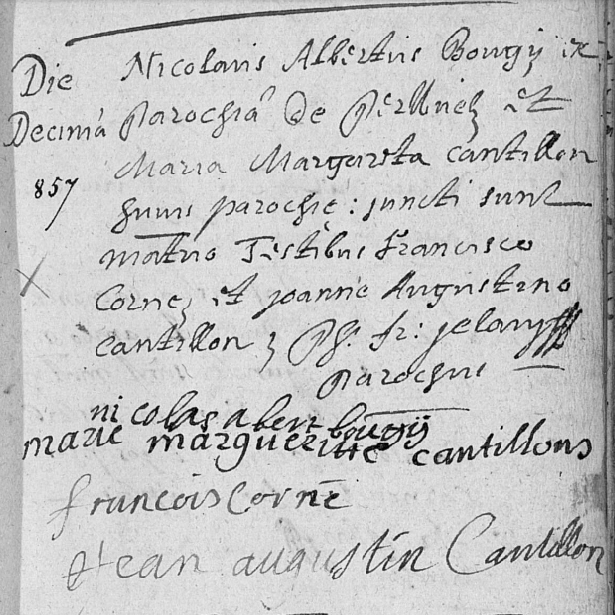 Die
Decimâ
857
Nicolaus Albertus Bougij ex
Parochiâ De Peruuelz et
Maria Margareta Cantillon
huius parochię: juncti sunt
matrio Testibus Francisco
Corne, et joanne Augustino
Cantillon,
Parochus
nicolas abert bougij
marie margueritte cantillons
francois Corne
Jean augustin Cantillon